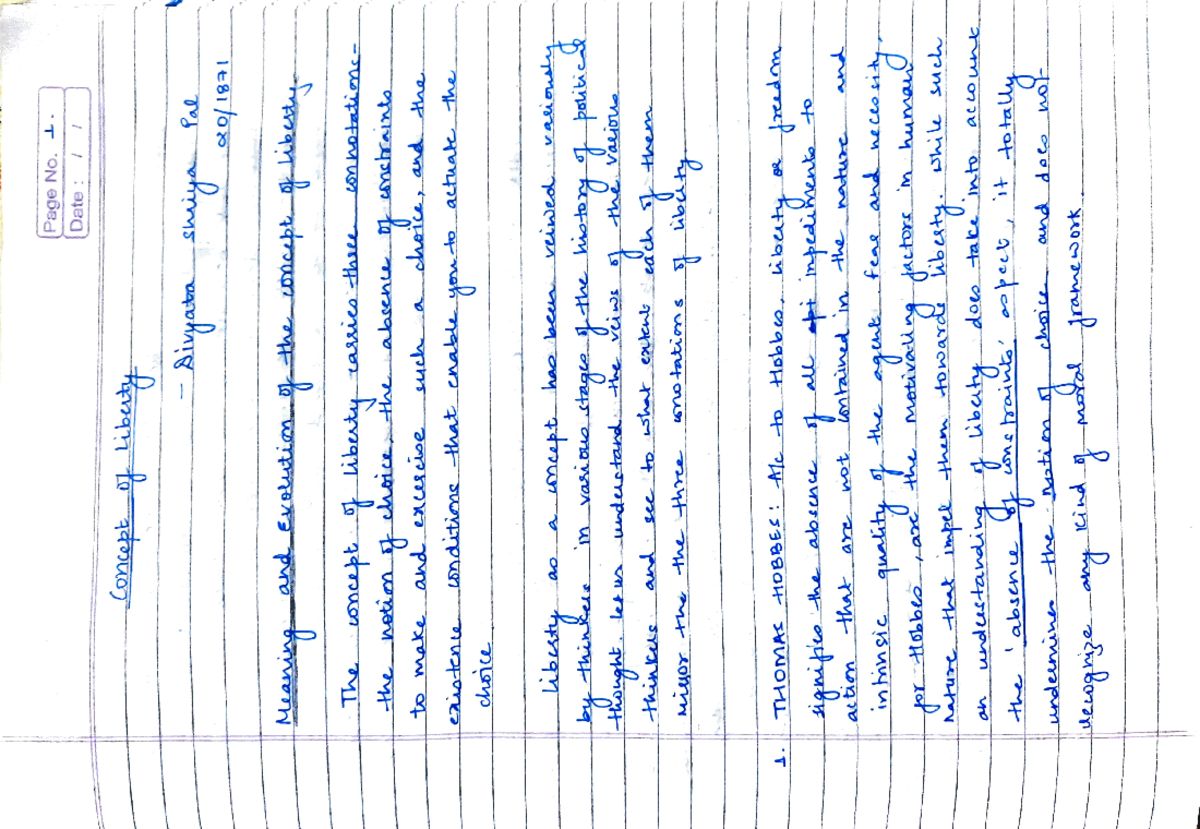 Page No. 1.
Date : / /
Concept of Liberty
- Divyata Shriya Pal
20/1871
Meaning and Evolution of the concept of liberty
The concept of liberty carries three connotations-
the notion of choice, the absence of constraints
to make and excercise such a choice, and the
existence conditions that enable you to actuate the
choice
liberty as a concept has been veiwed variously
by thinkers in various stages of the history of political
thought. let us understand the veiws of the various
thinkers and see to what extent each of them
mirror the three conotations of liberty.
1. THOMAS HOBBES: A/c to Hobbes, liberty or freedom
signifies the absence of all impediments to
action that are not contained in the nature and
intrinsic quality of the agent. fear and necessity,
for Hobbes, are the motivating factors in human
nature that impel them towards liberty. while such
an understanding of liberty does take into account
the 'absence of constraints' aspect, it totally
undermines the notion of choice and does not
recognize any kind of moral framework.